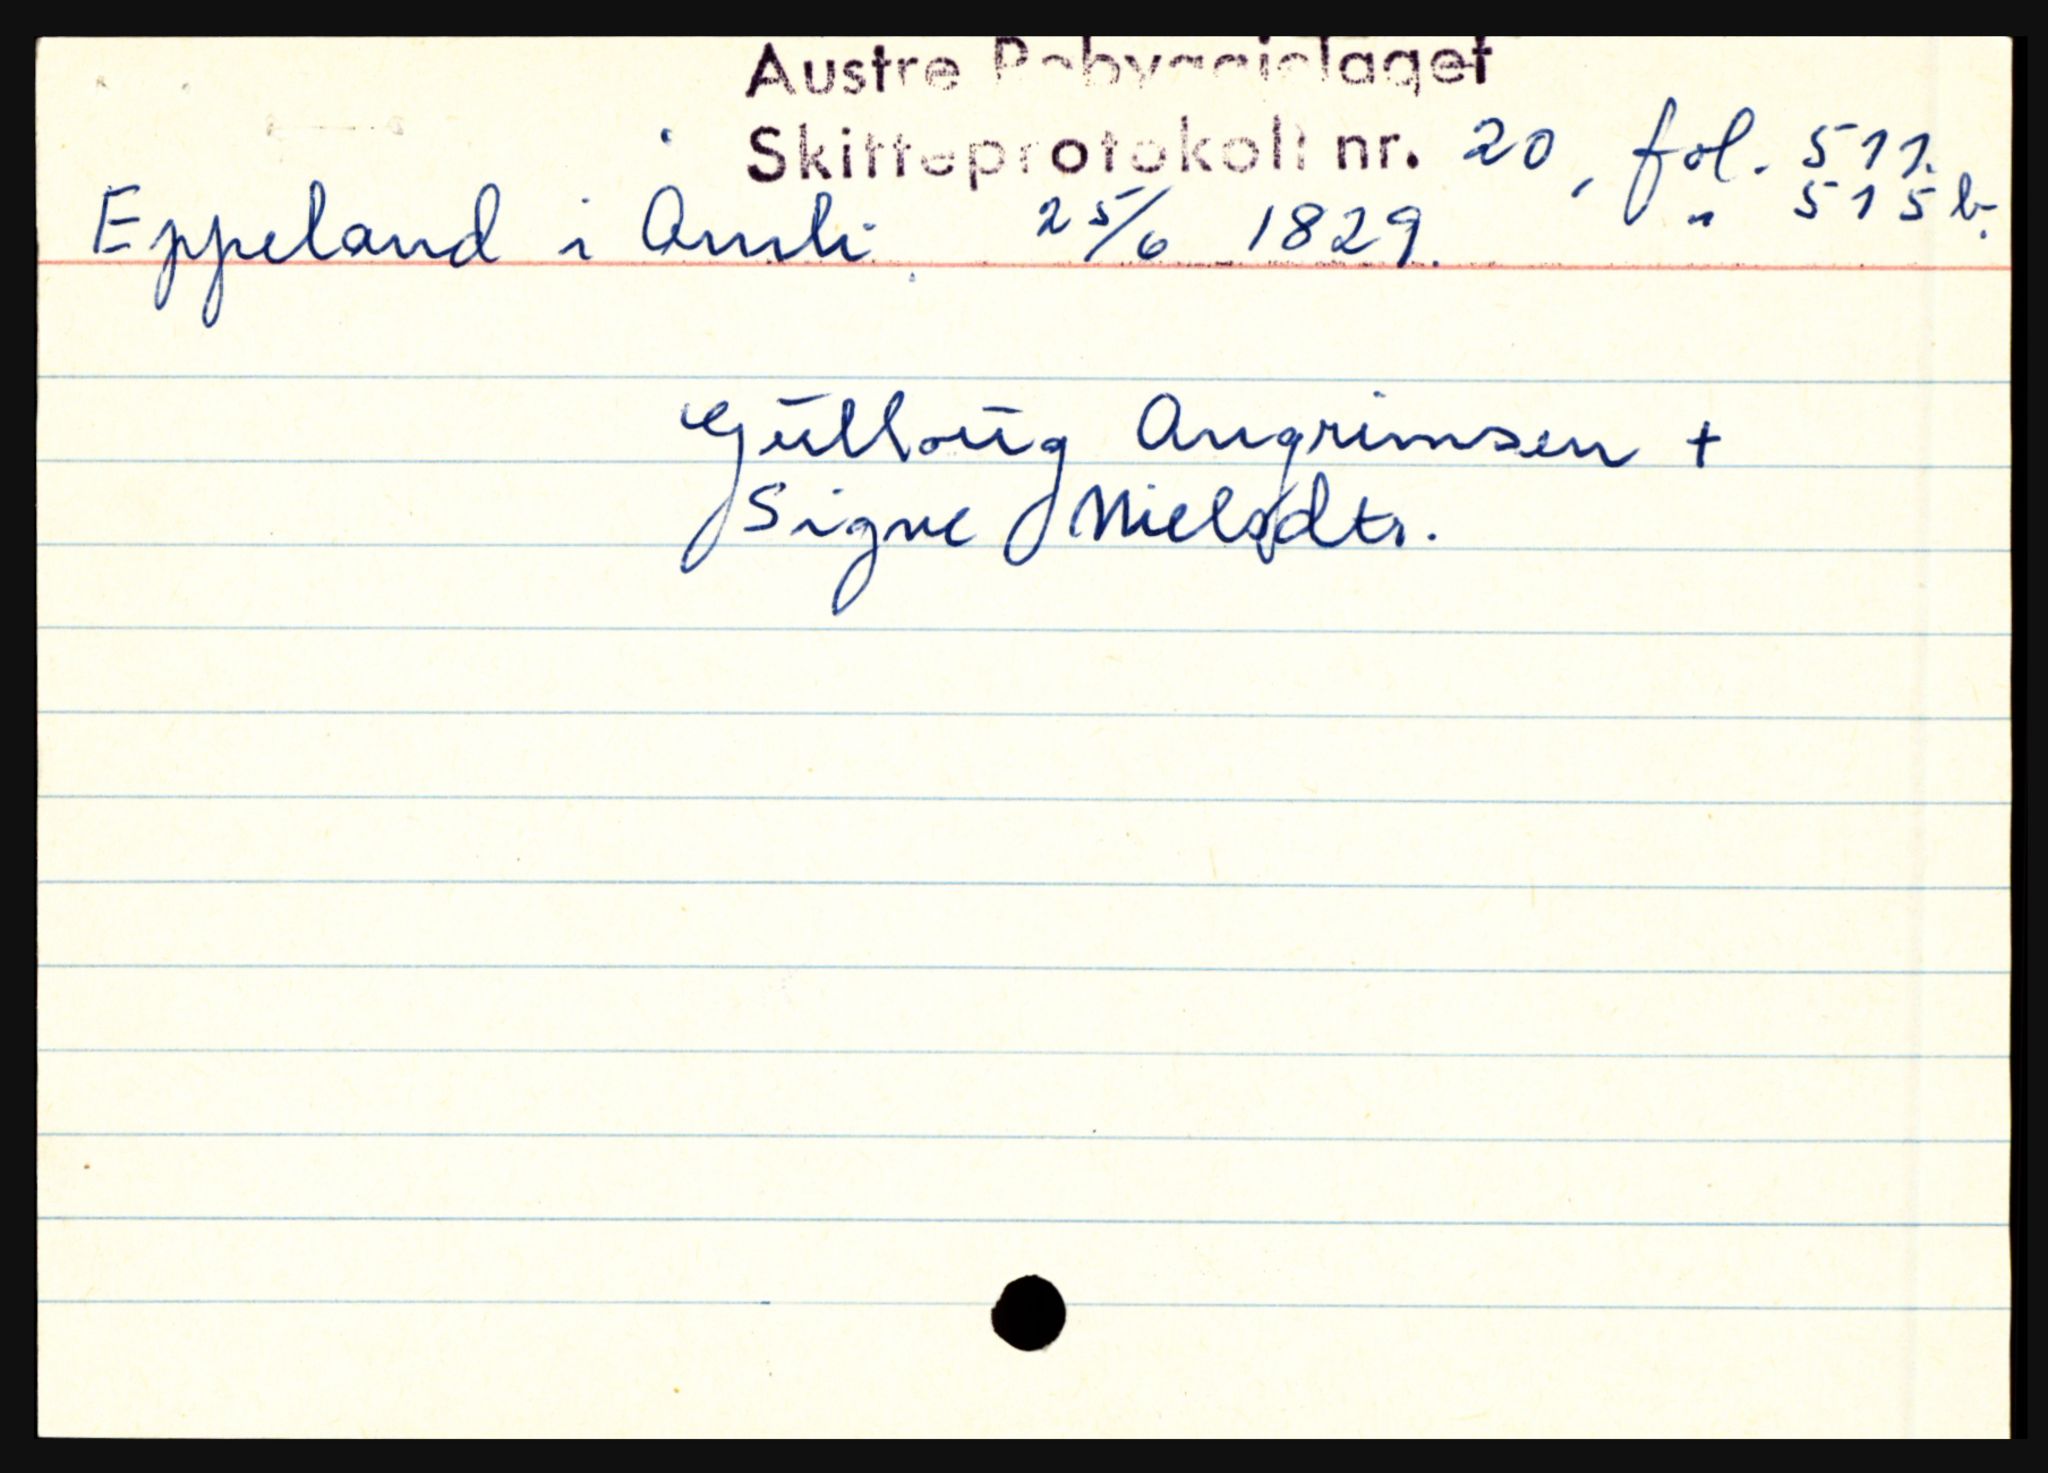 Austre Robyggjelaget
Skifteprotokoll nr. 20, fol. 511.
Eppeland i Åmli 25/6 1829. " 515b.
Gulloug Angrimsen +
Signe Nielsdtr.